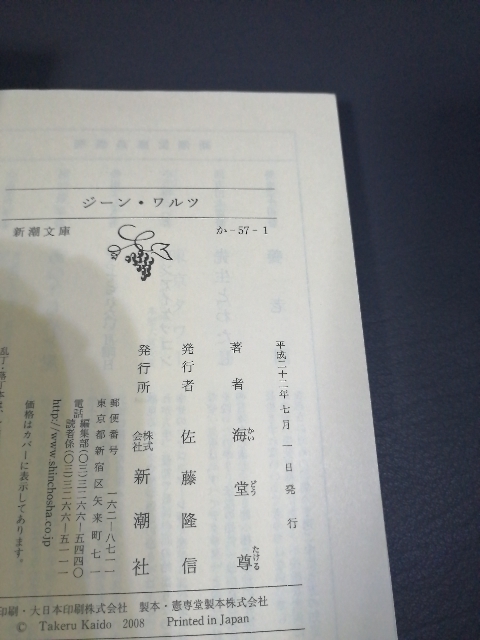 ジーン・ワルツ
新潮文庫
か-57-1
平成二十二年七月一日発行
著者 海堂尊
かい どう たける
発行者 佐藤隆信
発行所 株式会社 新潮社
郵便番号 一六二―八七一一
東京都新宿区矢来町七一
電話 編集部(〇三)三二六六―五四四〇
読者係(〇三)三二六六―五一一一
http://www.shinchosha.co.jp
価格はカバーに表示してあります。
印刷・大日本印刷株式会社 製本・憲専堂製本株式会社
© Takeru Kaido 2008 Printed in Japan